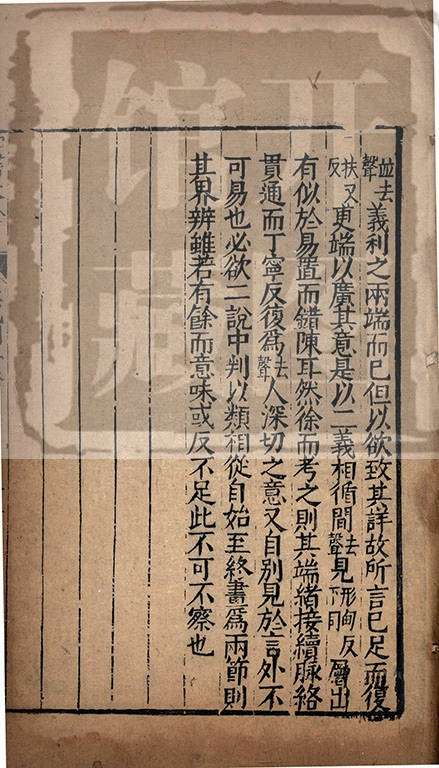 並去聲義利之兩端而已但以欲致其詳故所言已足而復
扶又反更端以廣其意是以二義相循間去聲見形甸反下同層出
有似於易置而錯陳耳然徐而考之則其端緒接續脉絡
貫通而丁寧反復爲去聲人深切之意又自別見於言外不
可易也必欲二說中判以類相從自始至終畫爲兩節則
其界辨雖若有餘而意味或反不足此不可不察也
館
藏